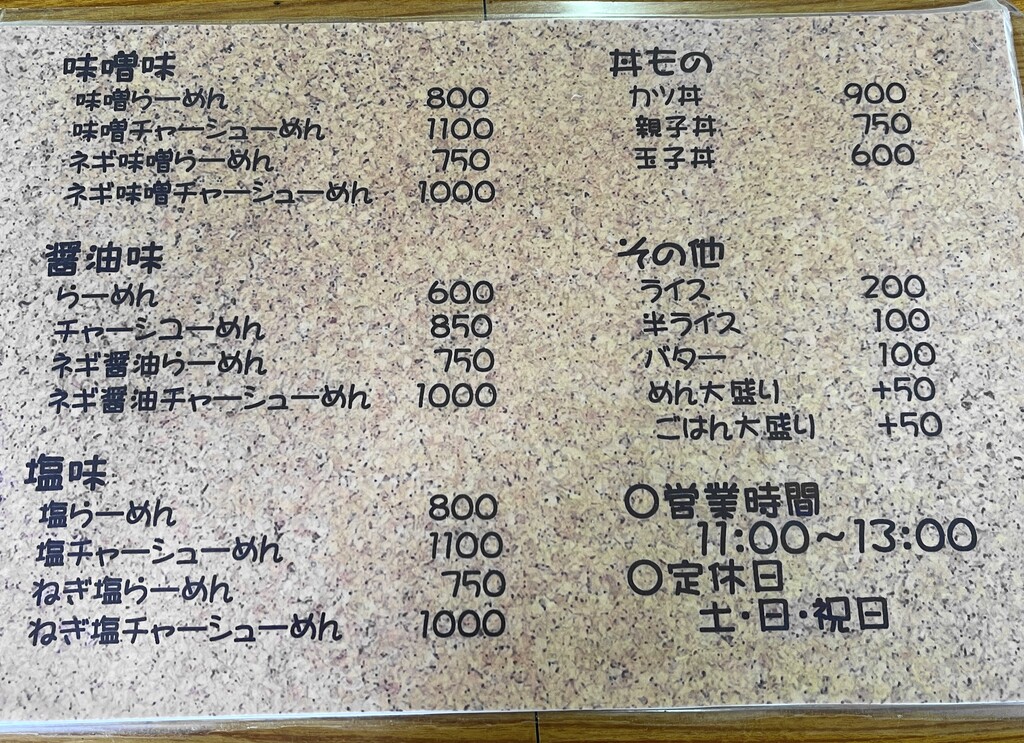 味噌味
味噌らーめん 800
味噌チャーシューめん 1100
ネギ味噌らーめん 750
ネギ味噌チャーシューめん 1000
醤油味
らーめん 600
チャーシューめん 850
ネギ醤油らーめん 750
ネギ醤油チャーシューめん 1000
塩味
塩らーめん 800
塩チャーシューめん 1100
ねぎ塩らーめん 750
ねぎ塩チャーシューめん 1000
丼もの
カツ丼 900
親子丼 750
玉子丼 600
その他
ライス 200
半ライス 100
バター 100
めん大盛り +50
ごはん大盛り +50
〇営業時間
11:00～13:00
〇定休日
土・日・祝日